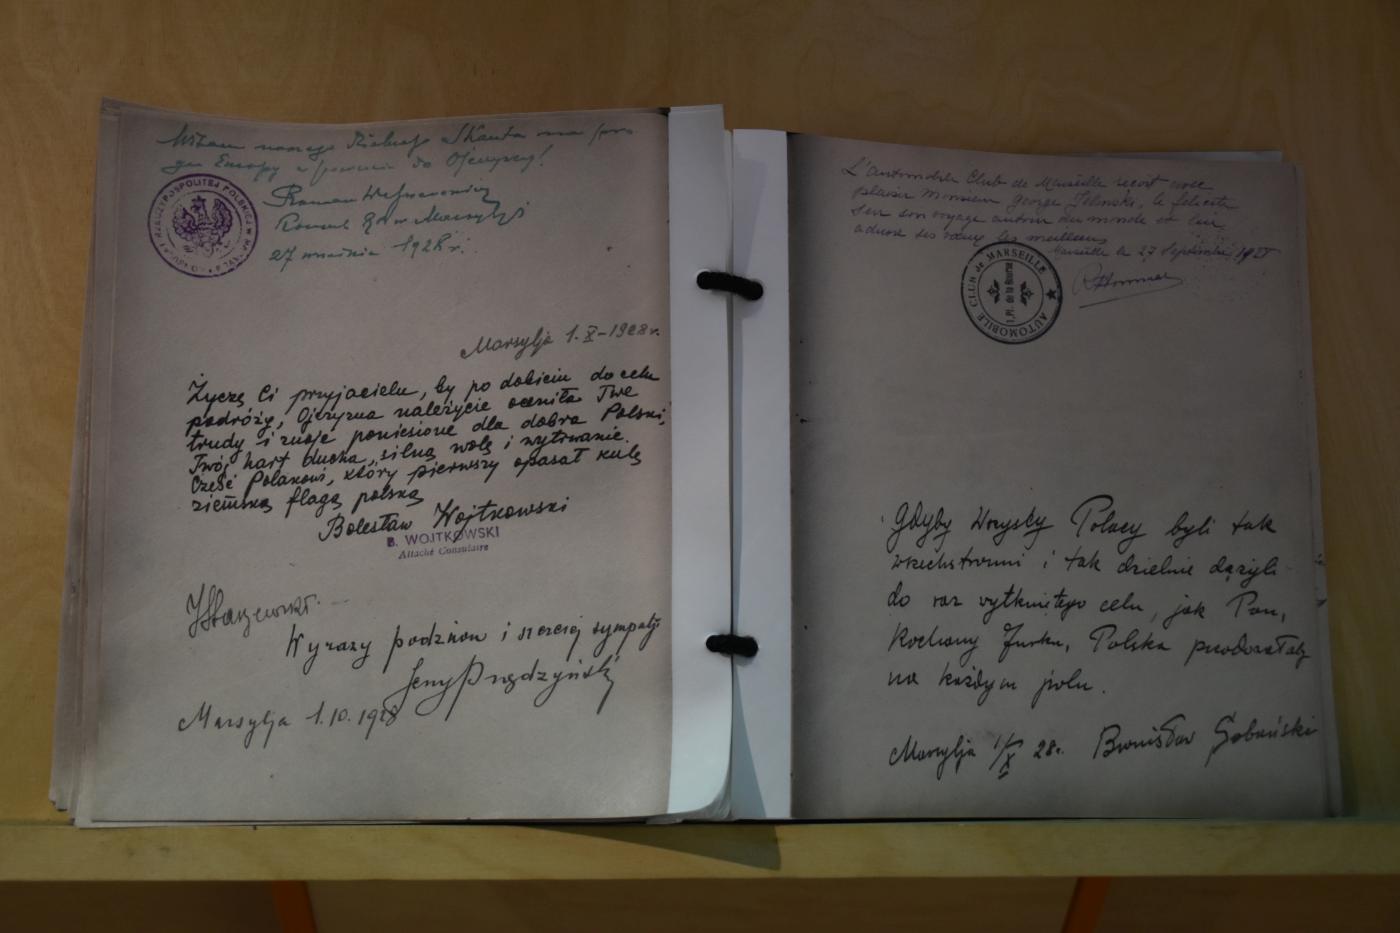 Witam naszego Dzielnego Skauta na pro
gu Europy w powrocie do Ojczyzny!
Roman
Konsul Marsylji
27 września 1928 r.
RZECZYPOSPOLITEJ POLSKIEJ W MARSYLJI
Marsylja 1.X-1928 r.
Życzę Ci przyjacielu, by po dobiciu do celu
podróży, Ojczyzna należycie oceniła Twe
trudy i znoje poniesione dla dobra Polski,
Twój hart ducha, silną wolę i wytrwanie.
Cześć Polakowi, który pierwszy opasał kulę
ziemską flagą polską
Bolesław Wojtkowski
B. WOJTKOWSKI
Attaché Consulaire
Wyrazy podziwu i szczerej sympatji
Jerzy Prądzyński
Marsylja 1.10.1928
L'automobile Club de Marseille reçoit avec
plaisir Monsieur George Jelinski, le félicite
sur son voyage autour du monde et lui
adresse ses vœux les meilleurs
Marseille le 27 Septembre 1928
AUTOMOBILE CLUB de MARSEILLE
Pl. de la Bourse
Gdyby wszyscy Polacy byli tak
wszechstronni i tak dzielnie dążyli
do raz wytkniętego celu, jak Pan,
Kochany Jurku, Polska przodowałaby
na każdym polu.
Marsylja 1/X 28 r. Bronisław